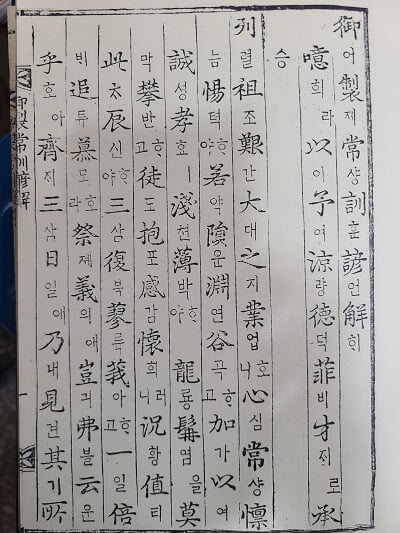 御어製졔常샹訓훈諺언解ᄒᆡ
噫희라以이予여涼량德덕菲비才ᄌᆡ로承
승
列렬祖조艱간大대之지業업ᄒᆞ니心심常샹懍
늠惕텩ᄒᆞ야若약隕운淵연谷곡ᄒᆞ고加가以이
誠셩孝효ㅣ淺쳔薄박ᄒᆞ야龍룡髯염을莫
막攀반ᄒᆞ고徒도抱포感감懷회러니況황値티
此ᄎᆞ辰신ᄒᆞ야三삼復복蓼륙莪아ᄒᆞ고一일倍
ᄇᆡ追튜慕모ᄒᆞ라祭졔義의애豈긔弗블云운
乎호아齊ᄌᆡ三삼日일애乃내見견其기所
御製常訓諺解